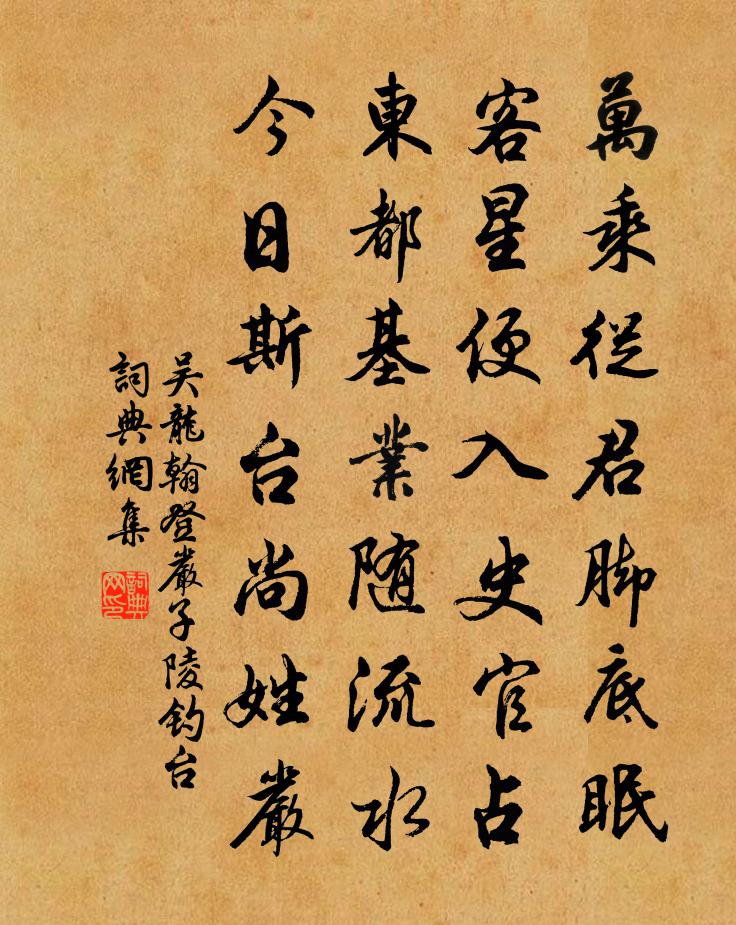 萬乘從君脚底眠
客星便入史官占
東都基業随流水
今日斯台尚姓嚴
吴龍翰登嚴子陵钓台
詞典網集
詞典
网印